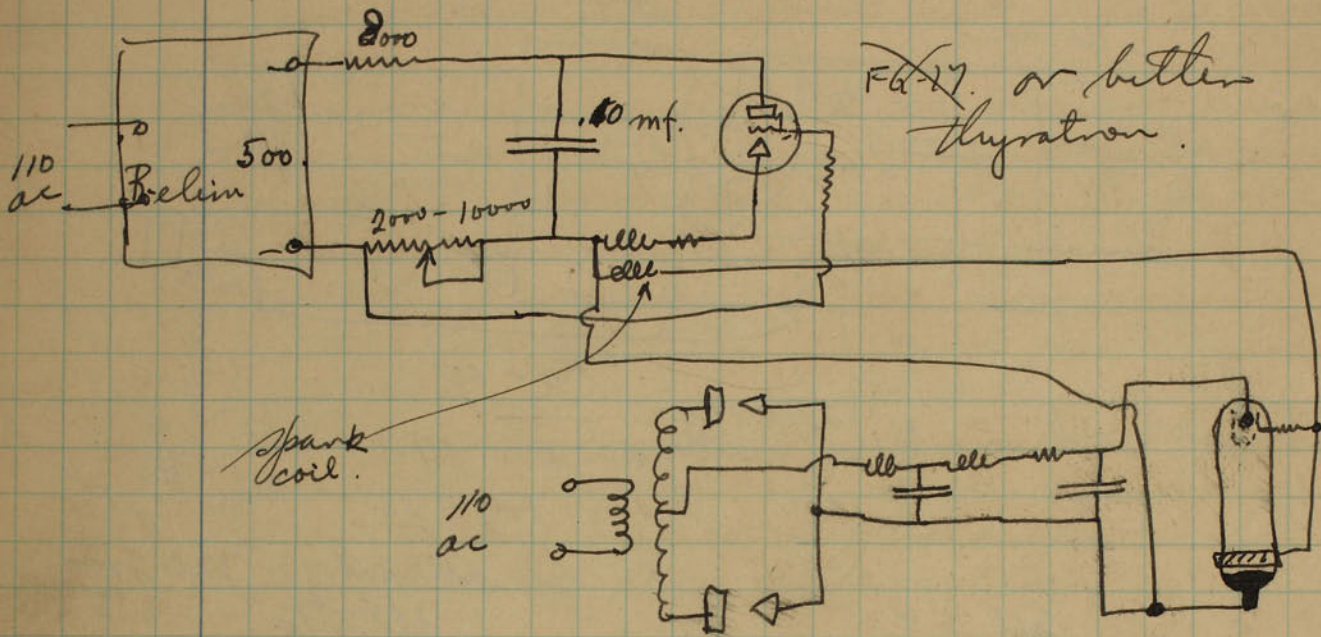 8000
FG-17. or better
thyratron.
.10 mf.
500
110
ac
Belin
2000-10000
spark
coil.
110
ac